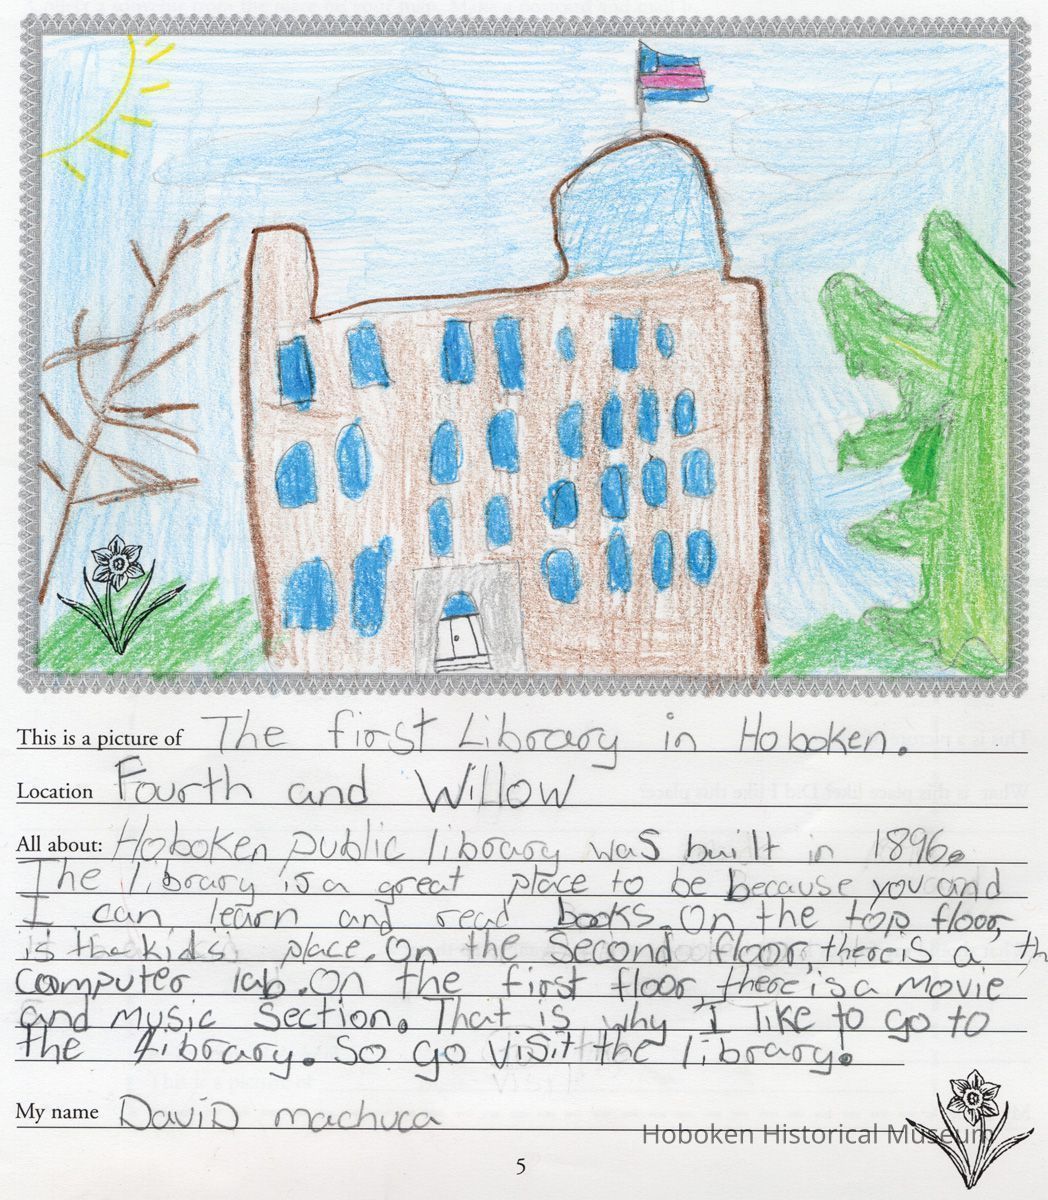 This is a picture of The first Library in Hoboken.
Location Fourth and Willow
All about: Hoboken public library was built in 1896.
The library is a great place to be because you and
I can learn and read books. On the top floor,
is the kids, place. On the Second floor, there is a th
computer lab. On the first floor there is a movie
and music Section. That is why I like to go to
the library. So go visit the library.
My name DaviD machuca
Hoboken Historical Museum
5